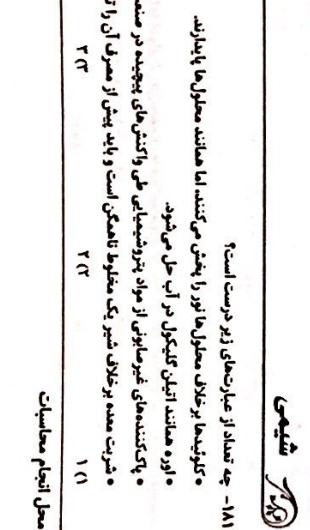 شیمی
۱۸۱- چه تعداد از عبارت‌های زیر درست است؟
• کلوئیدها برخلاف محلول‌ها نور را پخش می‌کنند، اما همانند محلول‌ها پایدارند.
• اوره همانند اتیلن گلیکول در آب حل می‌شود.
• پاک‌کننده‌های غیرصابونی از مواد پتروشیمیایی طی واکنش‌های پیچیده در
• شربت معده برخلاف شیر یک مخلوط ناهمگن است و باید پیش از مصرف آن را
۱) ۱ ۲) ۲ ۳) ۳
محل انجام محاسبات